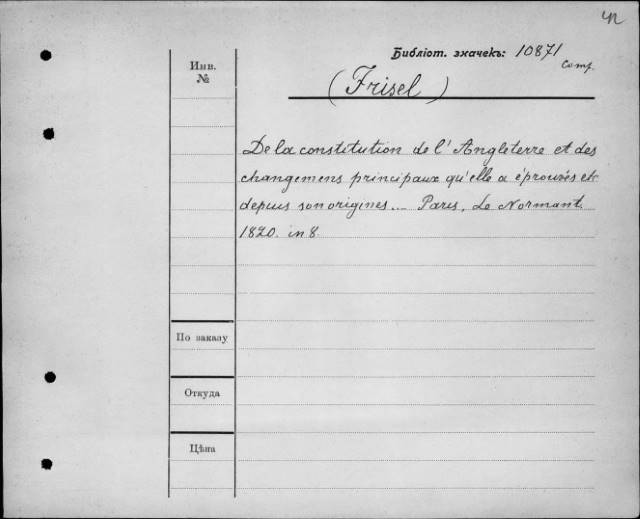 Библіот. значекъ: 10871
Comp.
Инв.
№
(Frisel)
De la constitution de l'Angleterre et des
changemens principaux qu'elle a éprouvés etc
depuis son origines... Paris, Le Normant.
1820. in 8.
По заказу
Откуда
Цѣна